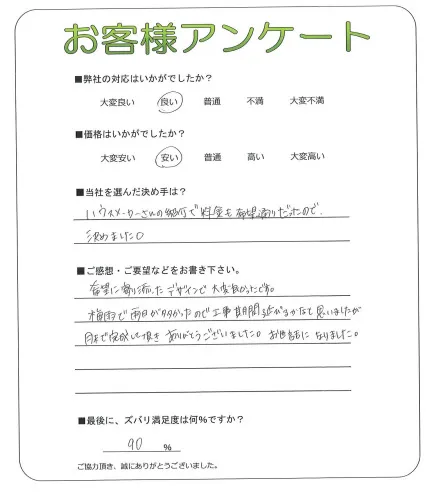 お客様アンケート
■弊社の対応はいかがでしたか？
大変良い 良い 普通 不満 大変不満
■価格はいかがでしたか？
大変安い 安い 普通 高い 大変高い
■当社を選んだ決め手は？
ハウスメーカーさんの紹介で料金も希望通りだったので、
決めました。
■ご感想・ご要望などをお書き下さい。
希望に寄り添ったデザインで大変良かったです。
梅雨で雨日が多かったので工事期間延びるかなと思いましたが
完成して頂きありがとうございました。お世話になりました。
■最後に、ズバリ満足度は何%ですか？
90 %
ご協力頂き、誠にありがとうございました。